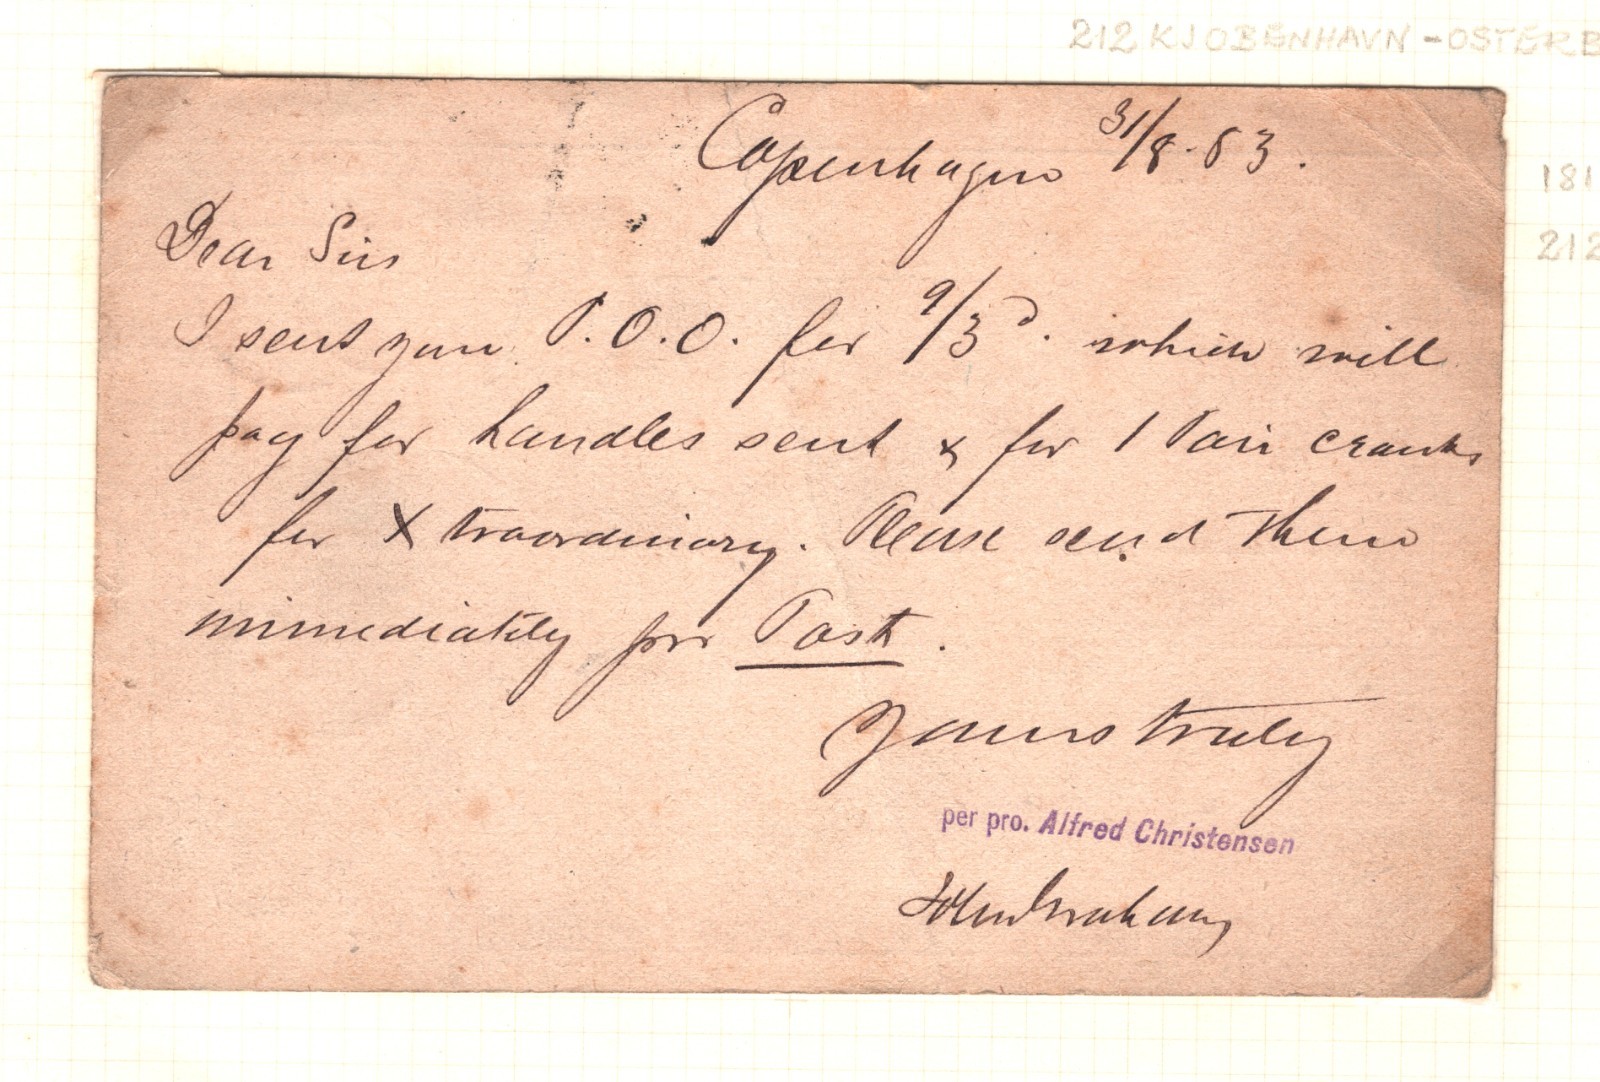 212 KJOBENHAVN - OSTERB
181
212
Copenhagen 31/8 - 83.
Dear Sirs
I sent you P.O.O. for 9/3d. which will
pay for handles sent & for 1 Pair cranks
for Xtraordinary. Please send them
immediately per Post.
Yours truly
per pro. Alfred Christensen